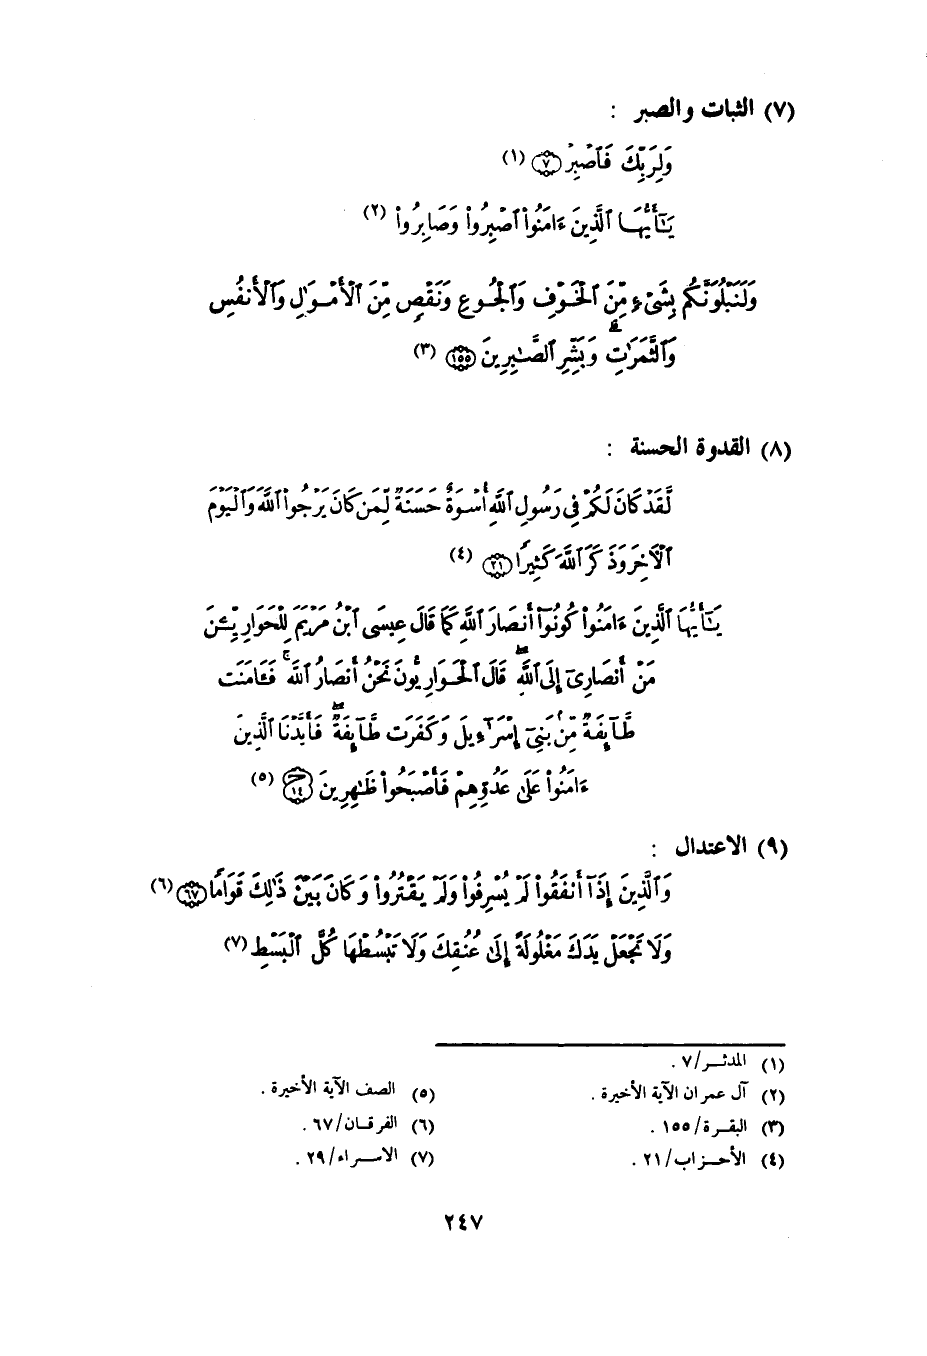 (٧) الثبات والصبر :
وَلِرَبِّكَ فَٱصْبِرْ ٧ (١)
يَـٰٓأَيُّهَا ٱلَّذِينَ ءَامَنُوا۟ ٱصْبِرُوا۟ وَصَابِرُوا۟ (٢)
وَلَنَبْلُوَنَّكُم بِشَىْءٍ مِّنَ ٱلْخَوْفِ وَٱلْجُوعِ وَنَقْصٍ مِّنَ ٱلْأَمْوَٰلِ وَٱلْأَنفُسِ
وَٱلثَّمَرَٰتِ ۗ وَبَشِّرِ ٱلصَّـٰبِرِينَ ١٥٥ (٣)
(٨) القدوة الحسنة :
لَّقَدْ كَانَ لَكُمْ فِى رَسُولِ ٱللَّهِ أُسْوَةٌ حَسَنَةٌ لِّمَن كَانَ يَرْجُوا۟ ٱللَّهَ وَٱلْيَوْمَ
ٱلْـَٔاخِرَ وَذَكَرَ ٱللَّهَ كَثِيرًا ٢١ (٤)
يَـٰٓأَيُّهَا ٱلَّذِينَ ءَامَنُوا۟ كُونُوٓا۟ أَنصَارَ ٱللَّهِ كَمَا قَالَ عِيسَى ٱبْنُ مَرْيَمَ لِلْحَوَارِيِّـۧنَ
مَنْ أَنصَارِىٓ إِلَى ٱللَّهِ ۖ قَالَ ٱلْحَوَارِيُّونَ نَحْنُ أَنصَارُ ٱللَّهِ ۖ فَـَٔامَنَت
طَّآئِفَةٌ مِّنۢ بَنِىٓ إِسْرَٰٓءِيلَ وَكَفَرَت طَّآئِفَةٌ ۖ فَأَيَّدْنَا ٱلَّذِينَ
ءَامَنُوا۟ عَلَىٰ عَدُوِّهِمْ فَأَصْبَحُوا۟ ظَـٰهِرِينَ ١٤ (٥)
(٩) الاعتدال :
وَٱلَّذِينَ إِذَآ أَنفَقُوا۟ لَمْ يُسْرِفُوا۟ وَلَمْ يَقْتُرُوا۟ وَكَانَ بَيْنَ ذَٰلِكَ قَوَامًا ٦٧ (٦)
وَلَا تَجْعَلْ يَدَكَ مَغْلُولَةً إِلَىٰ عُنُقِكَ وَلَا تَبْسُطْهَا كُلَّ ٱلْبَسْطِ (٧)
(١) المدثـر/٧ .
(٢) آل عمران الآية الأخيرة .
(٣) البقـرة/١٥٥ .
(٤) الأحـزاب/٢١ .
(٥) الصف الآية الأخيرة .
(٦) الفرقـان/٦٧ .
(٧) الاسـراء/٢٩ .
٢٤٧